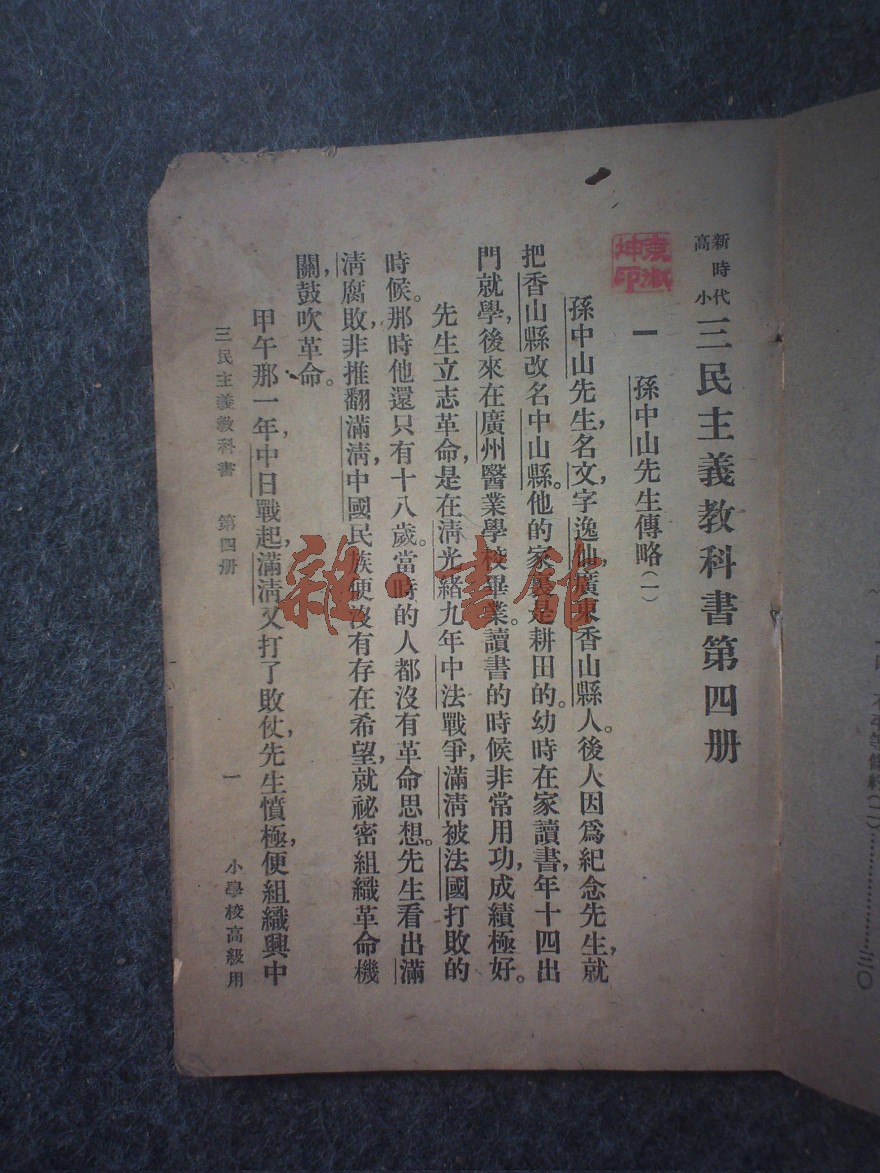 新時代
高小
三民主義教科書第四册
一 孫中山先生傳略(一)
孫中山先生,名文,字逸仙,廣東香山縣人。後人因爲紀念先生,就
把香山縣改名中山縣。他的家裏是耕田的。幼時在家讀書,年十四出
門就學,後來在廣州醫業學校畢業。讀書的時候非常用功,成績極好。
先生立志革命,是在清光緒九年中法戰爭,滿清被法國打敗的
時候。那時他還只有十八歲。當時的人都沒有革命思想。先生看出滿
清腐敗,非推翻滿清,中國民族便沒有存在希望,就祕密組織革命機
關,鼓吹革命。
甲午那一年,中日戰起,滿清又打了敗仗,先生憤極,便組織興中
三民主義教科書 第四册 一 小學校高級用
雜·書館
不平等條約(二)……………三〇